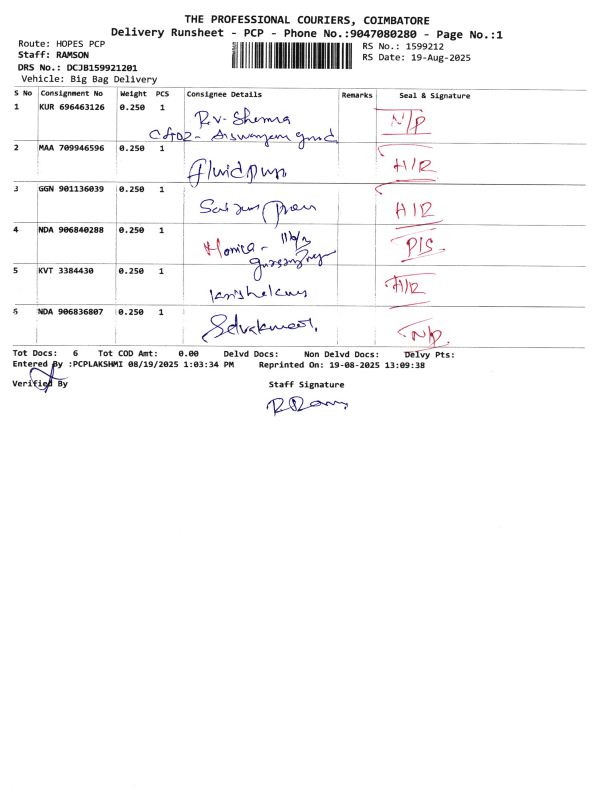 THE PROFESSIONAL COURIERS, COIMBATORE
Delivery Runsheet - PCP - Phone No.:9047080280 - Page No.:1
Route: HOPES PCP
RS No.: 1599212
Staff: RAMSON
RS Date: 19-Aug-2025
DRS No.: DCJB159921201
Vehicle: Big Bag Delivery
S No Consignment No Weight PCS Consignee Details Remarks Seal & Signature
1 KUR 696463126 0.250 1 R.V- Sharma N/P
2 MAA 709946596 0.250 1 fluidpump H/R
3 GGN 901136039 0.250 1 H/R
4 NDA 906840288 0.250 1 Monica - P/S
5 KVT 3384430 0.250 1 H/R
6 NDA 906836807 0.250 1 Selvakumar. N/P
Tot Docs: 6 Tot COD Amt: 0.00 Delvd Docs: Non Delvd Docs: Delvy Pts:
Entered By :PCPLAKSHMI 08/19/2025 1:03:34 PM Reprinted On: 19-08-2025 13:09:38
Verified By Staff Signature